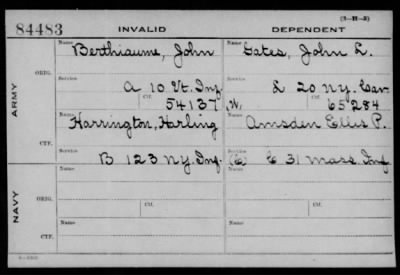 84483 INVALID DEPENDENT (3-H-2)
Name Berthiaume, John Name Gates, John L.
ARMY ORIG. Service A 10 Vt. Inf Service L 20 N.Y. Cav
Ctf. 54137 W. Ctf. 65284
Name Harrington, Harling Name Amsden Ellis P.
CTF. Service B 123 N.Y. Inf. Service (C) C 31 Mass Inf
NAVY ORIG. Name Name
Service Ctf. Service Ctf.
Name Name
CTF. Service Service